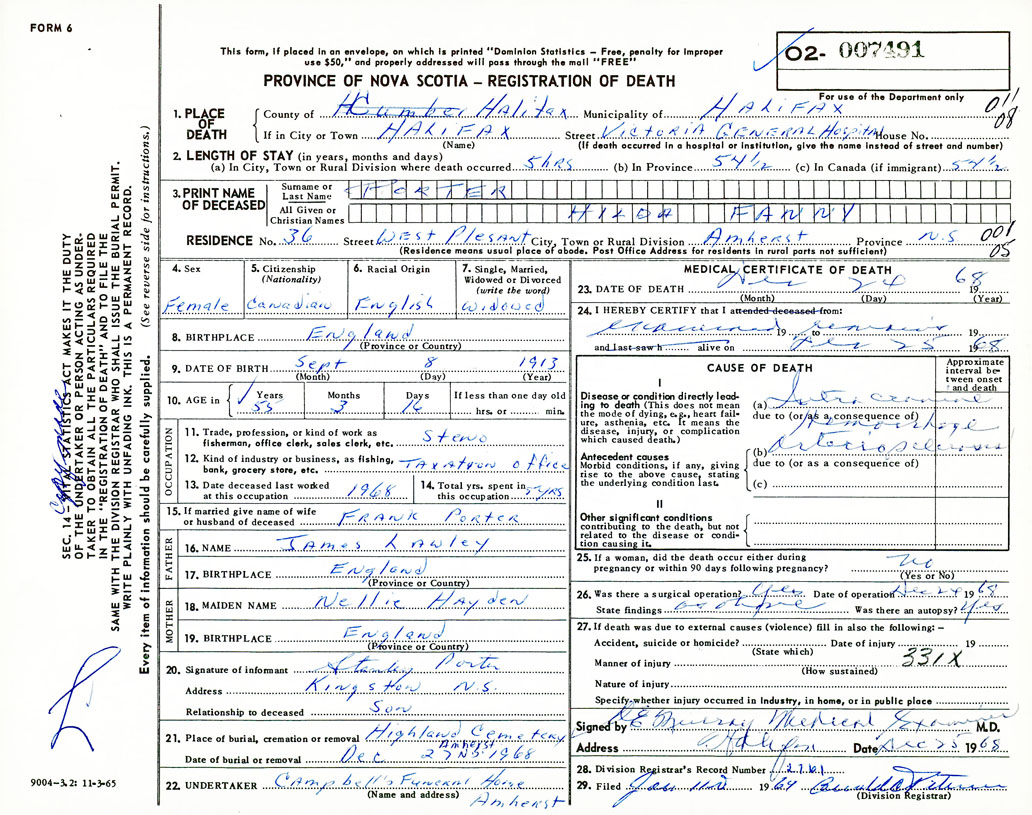 FORM 6
This form, if placed in an envelope, on which is printed "Dominion Statistics – Free, penalty for improper
use $50," and properly addressed will pass through the mail "FREE"
02- 007491
For use of the Department only
PROVINCE OF NOVA SCOTIA – REGISTRATION OF DEATH
011
08
1. PLACE OF DEATH County of Halifax Municipality of HALIFAX
If in City or Town HALIFAX Street VICTORIA GENERAL Hospital House No.
(Name) (If death occurred in a hospital or institution, give the name instead of street and number)
2. LENGTH OF STAY (in years, months and days)
(a) In City, Town or Rural Division where death occurred 5 hrs (b) In Province 54 1/2 (c) In Canada (if immigrant) 54 1/2
3. PRINT NAME OF DECEASED
Surname or Last Name PORTER
All Given or Christian Names HILDA FANNY
RESIDENCE No. 36 Street West Plesant City, Town or Rural Division Amherst Province N.S
001
05
(Residence means usual place of abode. Post Office Address for residents in rural parts not sufficient)
4. Sex
Female
5. Citizenship (Nationality)
Canadian
6. Racial Origin
English
7. Single, Married, Widowed or Divorced (write the word)
Widowed
8. BIRTHPLACE England
(Province or Country)
9. DATE OF BIRTH Sept 8 1913
(Month) (Day) (Year)
10. AGE in Years Months Days If less than one day old
55 3 16 hrs. or min.
OCCUPATION
11. Trade, profession, or kind of work as
fisherman, office clerk, sales clerk, etc. Steno
12. Kind of industry or business, as fishing,
bank, grocery store, etc. Taxation Office
13. Date deceased last worked
at this occupation 1968
14. Total yrs. spent in
this occupation yrs
15. If married give name of wife
or husband of deceased Frank Porter
FATHER
16. NAME James Lawley
17. BIRTHPLACE England
(Province or Country)
MOTHER
18. MAIDEN NAME Nellie Hayden
19. BIRTHPLACE England
(Province or Country)
20. Signature of informant Stanley Porter
Address Kingston N.S.
Relationship to deceased Son
21. Place of burial, cremation or removal Highland Cemetery
Amherst N.S.
Date of burial or removal Dec 27 1968
22. UNDERTAKER Campbell's Funeral Home
(Name and address) Amherst
MEDICAL CERTIFICATE OF DEATH
23. DATE OF DEATH Dec 24 1968
(Month) (Day) (Year)
24. I HEREBY CERTIFY that I attended deceased from:
examined 19 to remains 19
and last saw h alive on Dec 25 1968
CAUSE OF DEATH
Approximate interval between onset and death
I
Disease or condition directly leading to death (This does not mean the mode of dying, e.g., heart failure, asthenia, etc. It means the disease, injury, or complication which caused death.)
(a) Intracranial
due to (or as a consequence of)
Hemorrhage
Antecedent causes
Morbid conditions, if any, giving rise to the above cause, stating the underlying condition last.
(b) Arteriosclerosis
due to (or as a consequence of)
(c)
II
Other significant conditions
contributing to the death, but not related to the disease or condition causing it.
25. If a woman, did the death occur either during
pregnancy or within 90 days following pregnancy? No
(Yes or No)
26. Was there a surgical operation? Yes Date of operation Dec 24 1968
State findings as above Was there an autopsy? Yes
27. If death was due to external causes (violence) fill in also the following: –
Accident, suicide or homicide? Date of injury 19
(State which)
Manner of injury 331X
(How sustained)
Nature of injury
Specify whether injury occurred in Industry, in home, or in public place
Signed by Murray Medical Examiner M.D.
Address Halifax Date Dec 25 1968
28. Division Registrar's Record Number
29. Filed Jan 1969
(Division Registrar)
SEC. 14 – VITAL STATISTICS ACT MAKES IT THE DUTY
OF THE UNDERTAKER OR PERSON ACTING AS UNDER-
TAKER TO OBTAIN ALL THE PARTICULARS REQUIRED
IN THE "REGISTRATION OF DEATH" AND TO FILE THE
SAME WITH THE DIVISION REGISTRAR WHO SHALL ISSUE THE BURIAL PERMIT.
WRITE PLAINLY WITH UNFADING INK. THIS IS A PERMANENT RECORD.
Every item of information should be carefully supplied. (See reverse side for instructions.)
9004–3.2: 11-3-65